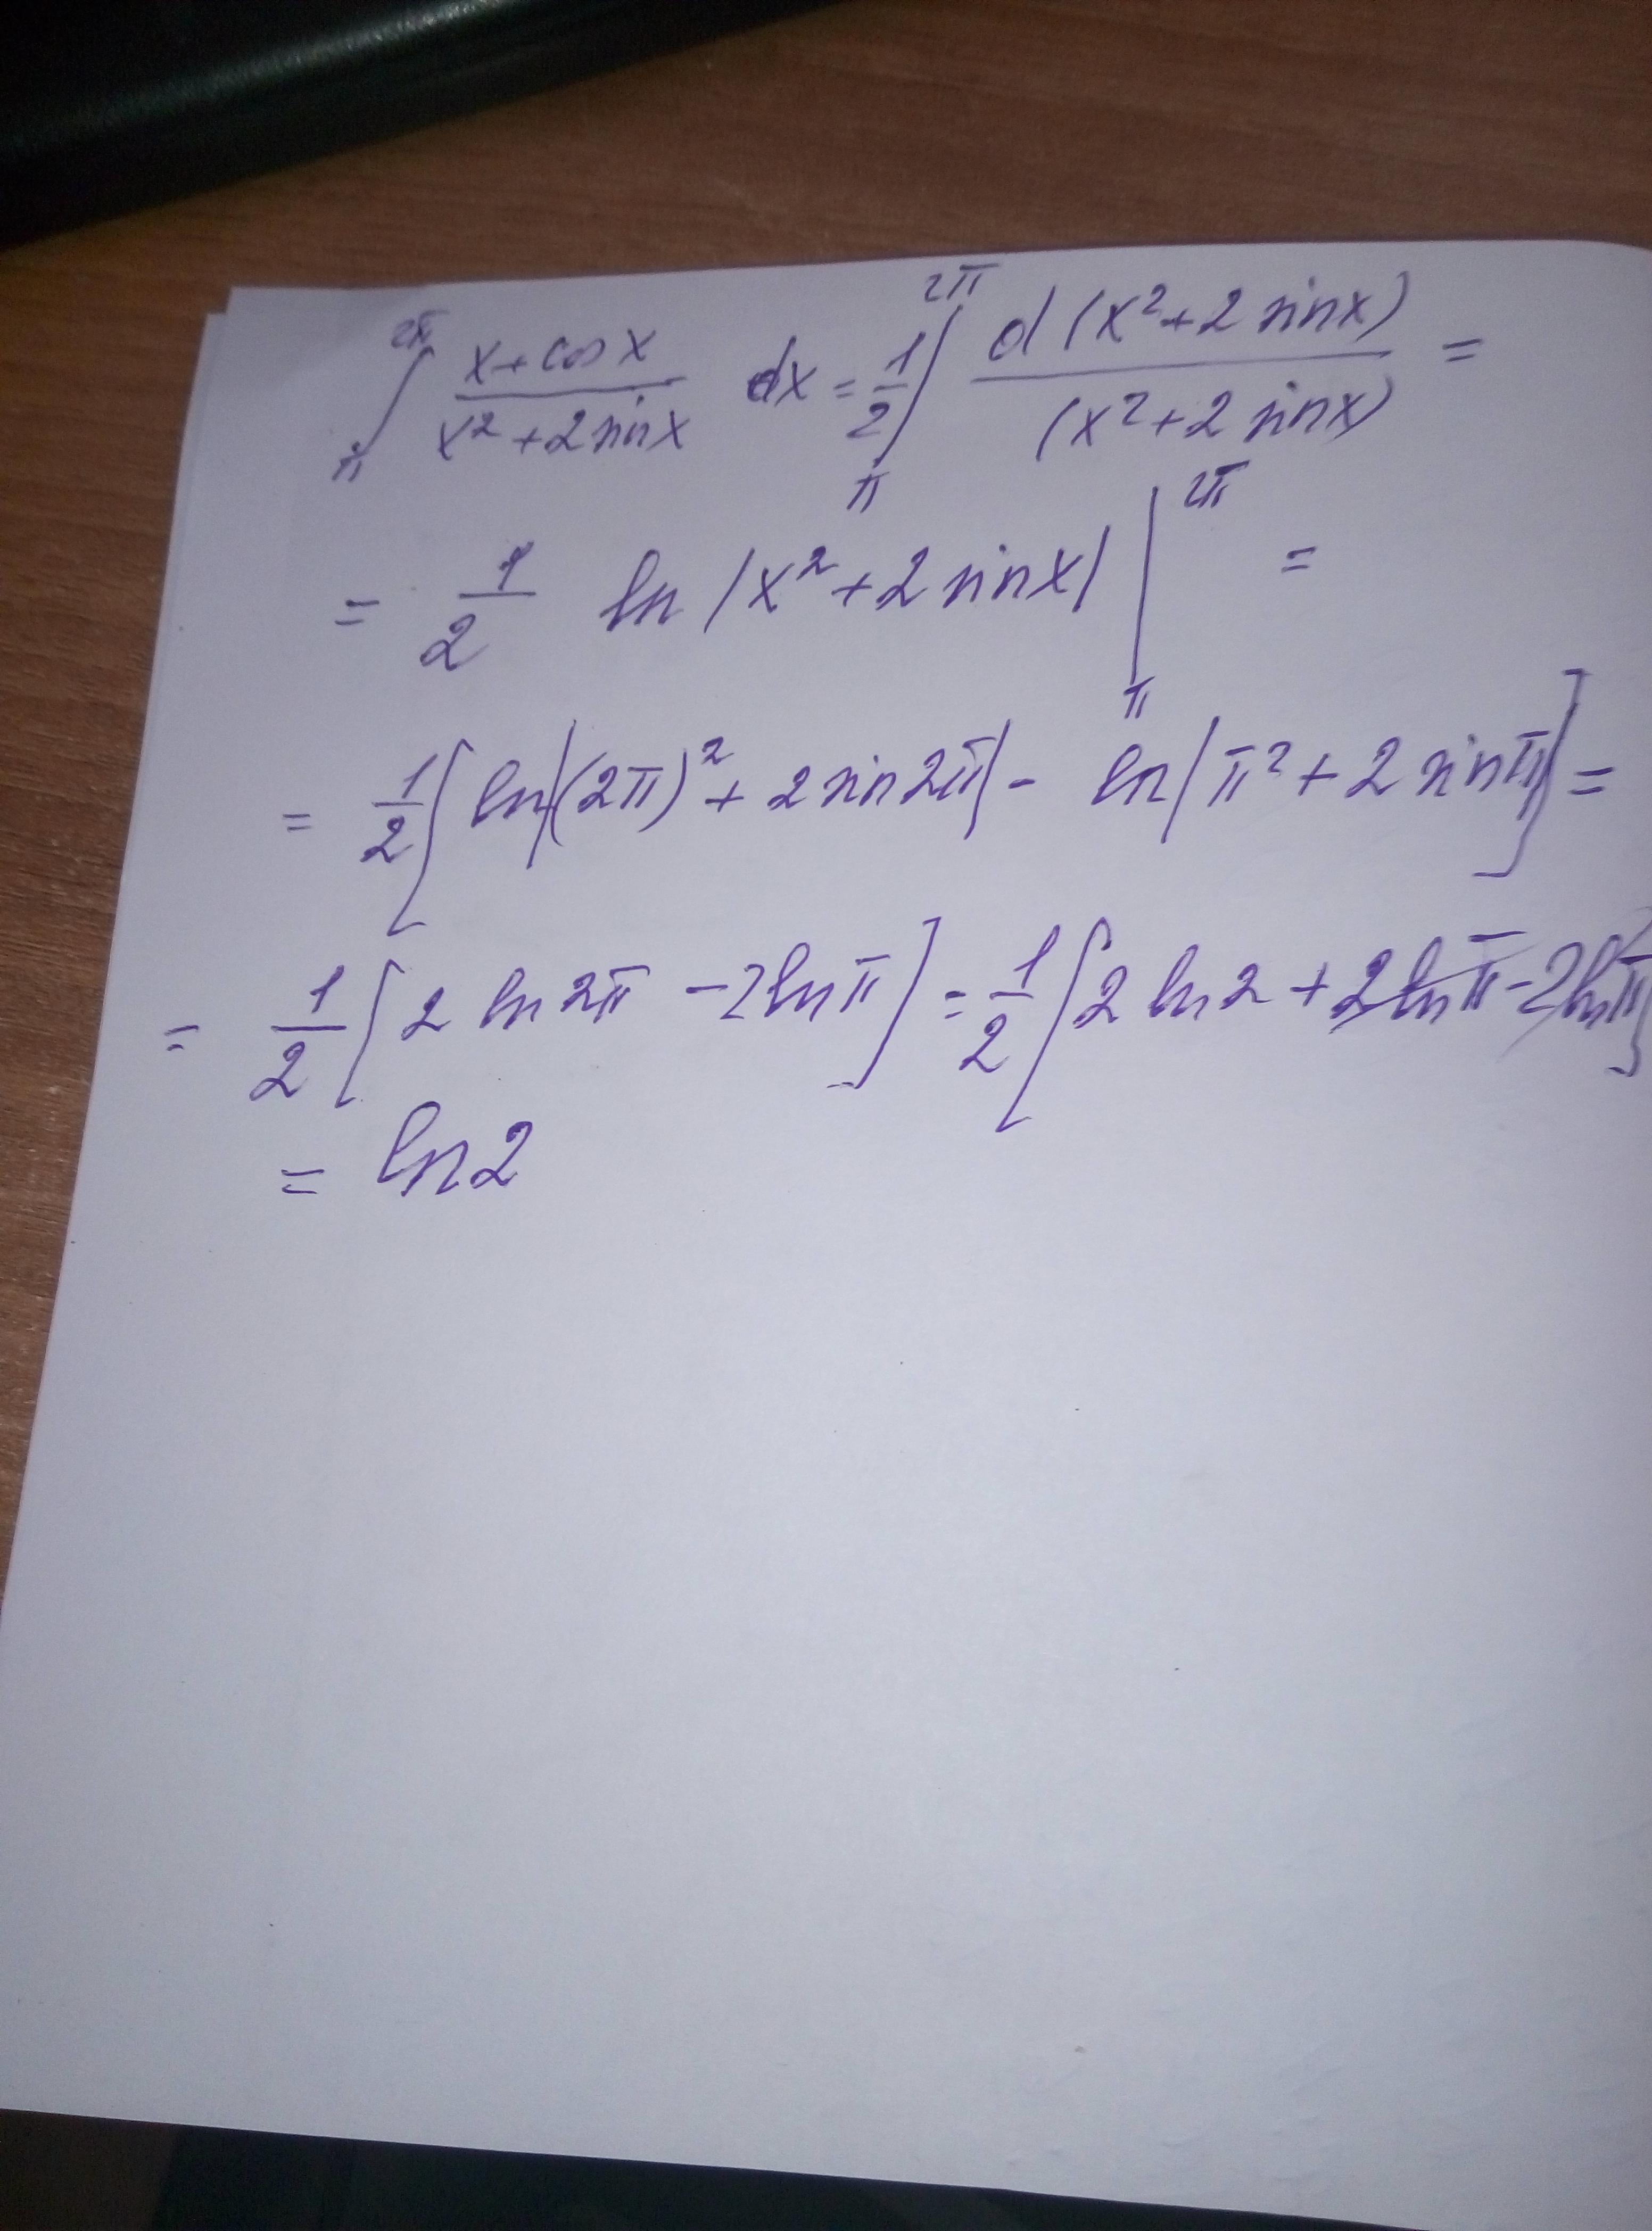 ∫_π^{2π} (x+cos x)/(x²+2sin x) dx = 1/2 ∫_π^{2π} d(x²+2 sin x)/(x²+2 sin x) =
= 1/2 ln |x²+2 sin x| |_π^{2π} =
= 1/2 [ln|(2π)²+2 sin 2π| - ln|π²+2 sin π|] =
= 1/2 [2 ln 2π - 2 ln π] = 1/2 [2 ln 2 + 2 ln π - 2 ln π]
= ln 2